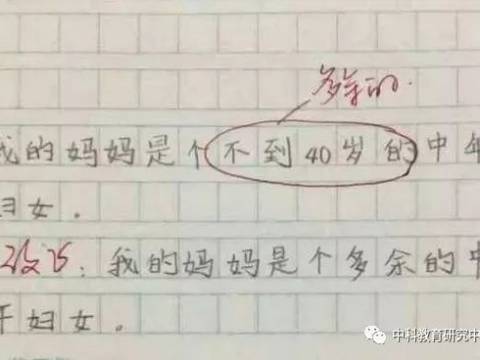 多余的.
我的妈妈是个不到40岁的中年
妇女.
改正:我的妈妈是个多余的中
年妇女.
中科教育研究中